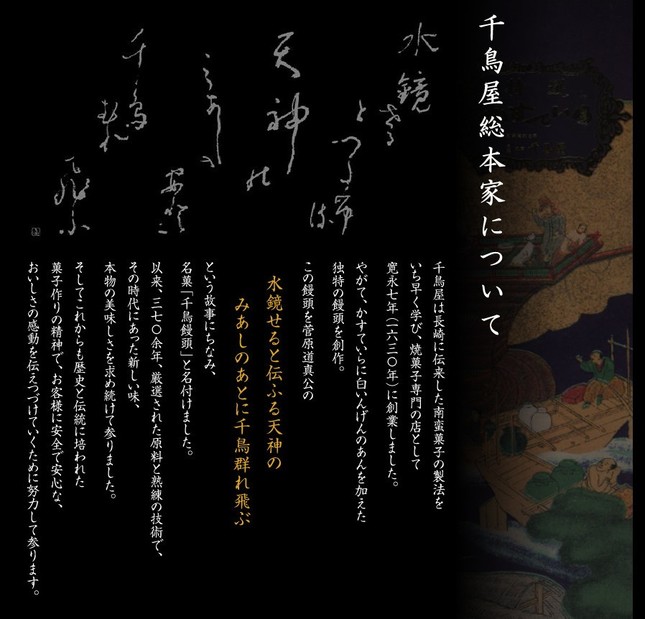 千鳥屋総本家について
水鏡
せると
つたふ
天神の
みあしの
あとに
千鳥
むれ
飛ふ
千鳥屋は長崎に伝来した南蛮菓子の製法を
いち早く学び、焼菓子専門の店として
寛永七年（一六三〇年）に創業しました。
やがて、かすていらに白いんげんのあんを加えた
独特の饅頭を創作。
この饅頭を菅原道真公の
水鏡せると伝ふる天神の
みあしのあとに千鳥群れ飛ぶ
という故事にちなみ、
名菓「千鳥饅頭」と名付けました。
以来、三七〇余年、厳選された原料と熟練の技術で、
その時代にあった新しい味、
本物の美味しさを求め続けて参りました。
そしてこれからも歴史と伝統に培われた
菓子作りの精神で、お客様に安全で安心な、
おいしさの感動を伝えつづけていくために努力して参ります。